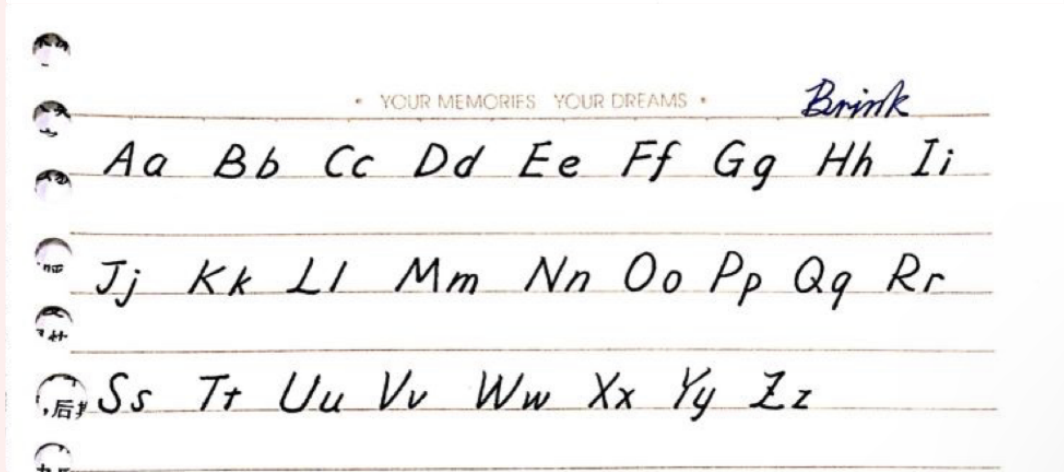 YOUR MEMORIES YOUR DREAMS
Brink
Aa Bb Cc Dd Ee Ff Gg Hh Ii
Jj Kk Ll Mm Nn Oo Pp Qq Rr
Ss Tt Uu Vv Ww Xx Yy Zz
后